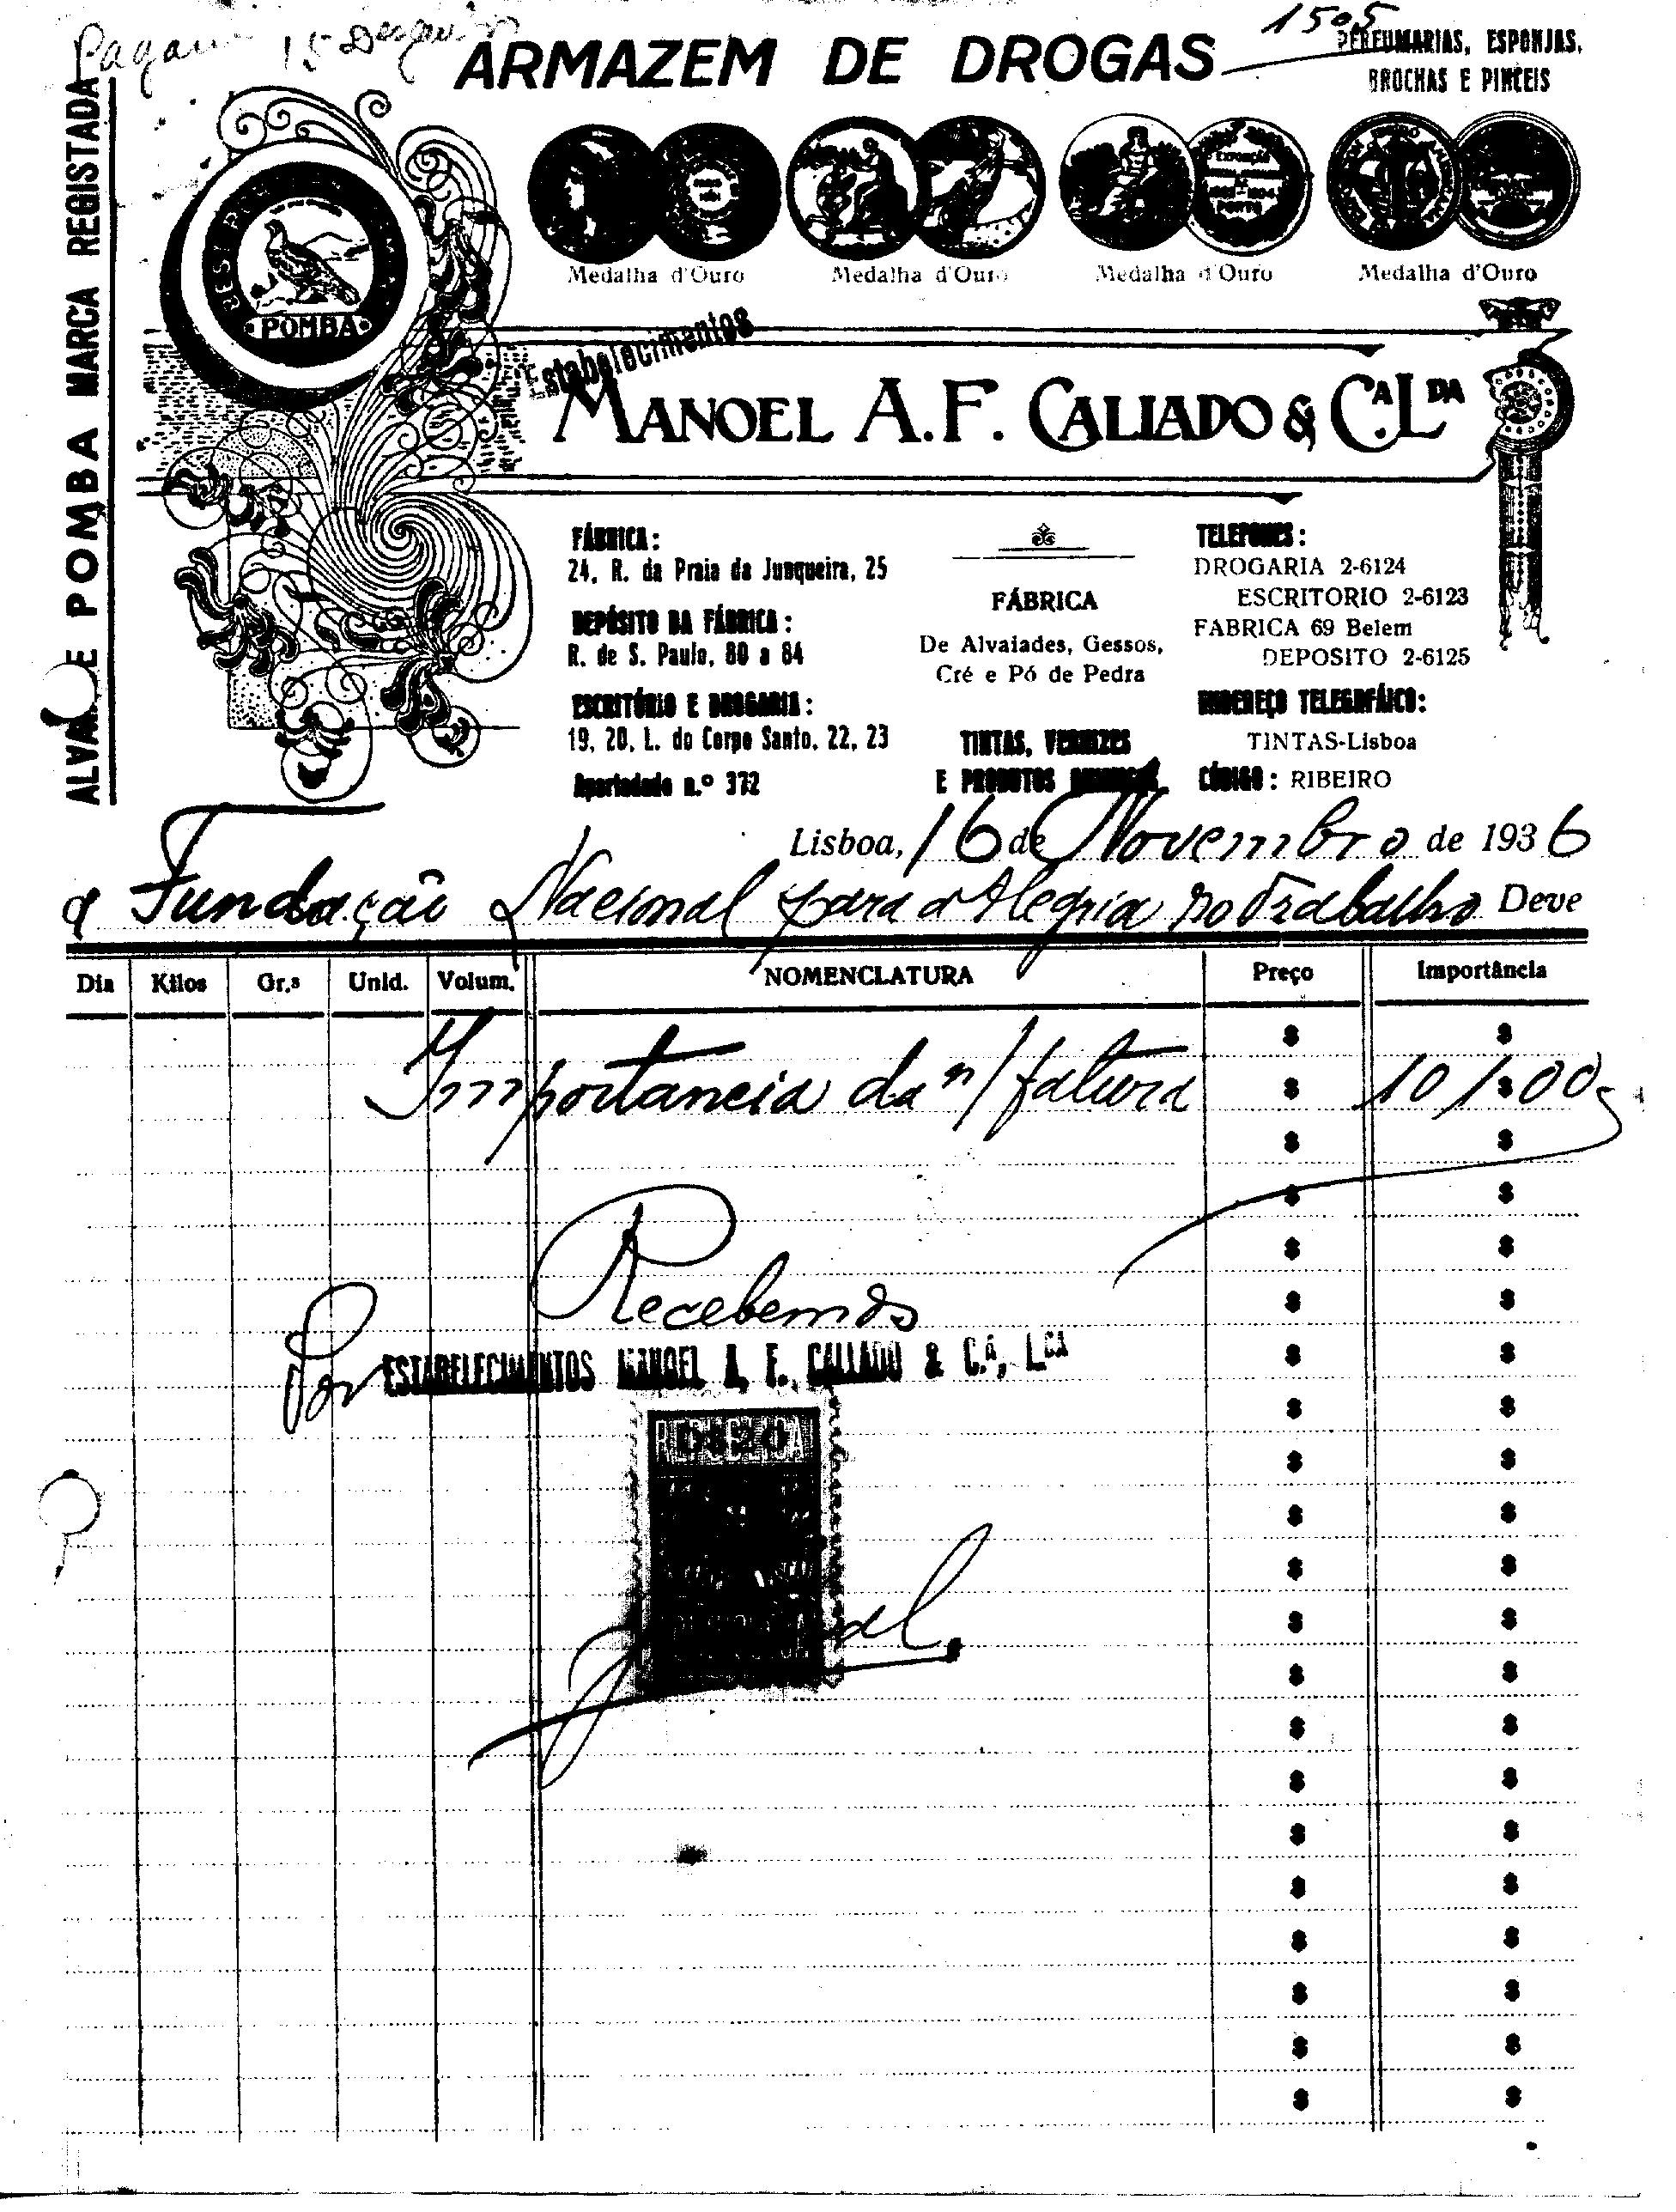 1505
ARMAZEM DE DROGAS
PERFUMARIAS, ESPONJAS,
BROCHAS E PINCEIS
ALVAIADE POMBA MARCA REGISTADA
POMBA
Medalha d'Ouro
Medalha d'Ouro
Medalha d'Ouro
Medalha d'Ouro
Estabelecimentos
MANOEL A. F. CALLADO & C.A L.DA
FÁBRICA:
24, R. da Praia da Junqueira, 25
DEPÓSITO DA FÁBRICA:
R. de S. Paulo, 80 a 84
ESCRITÓRIO E DROGARIA:
19, 20, L. do Corpo Santo, 22, 23
Apartado n.º 372
FÁBRICA
De Alvaiades, Gessos,
Cré e Pó de Pedra
TINTAS, VERNIZES
E PRODUTOS
TELEFONES:
DROGARIA 2-6124
ESCRITORIO 2-6123
FABRICA 69 Belem
DEPOSITO 2-6125
ENDEREÇO TELEGRÁFICO:
TINTAS-Lisboa
CÓDIGO: RIBEIRO
Lisboa, 16 de Novembro de 1936
a Fundação Nacional para a Alegria no Trabalho Deve
Dia Kilos Gr.s Unid. Volum. NOMENCLATURA Preço Importância
Importancia da n/ fatura 101$00
Recebemos
Por ESTABELECIMENTOS MANOEL A. F. CALLADO & C.A, L.DA
0$20